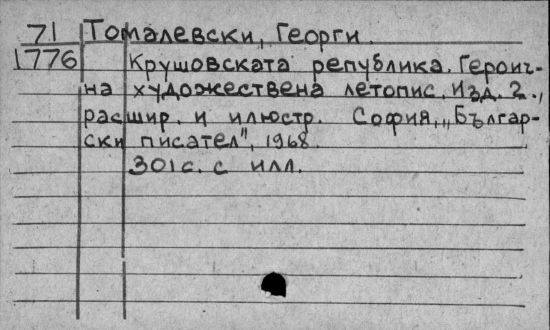 71 Томалевски, Георги.
1776 Крушовската република. Героич-
на художествена летопис. Изд. 2.,
расшир. и илюстр. София, „Българ-
ски писател", 1968.
301 с. с илл.